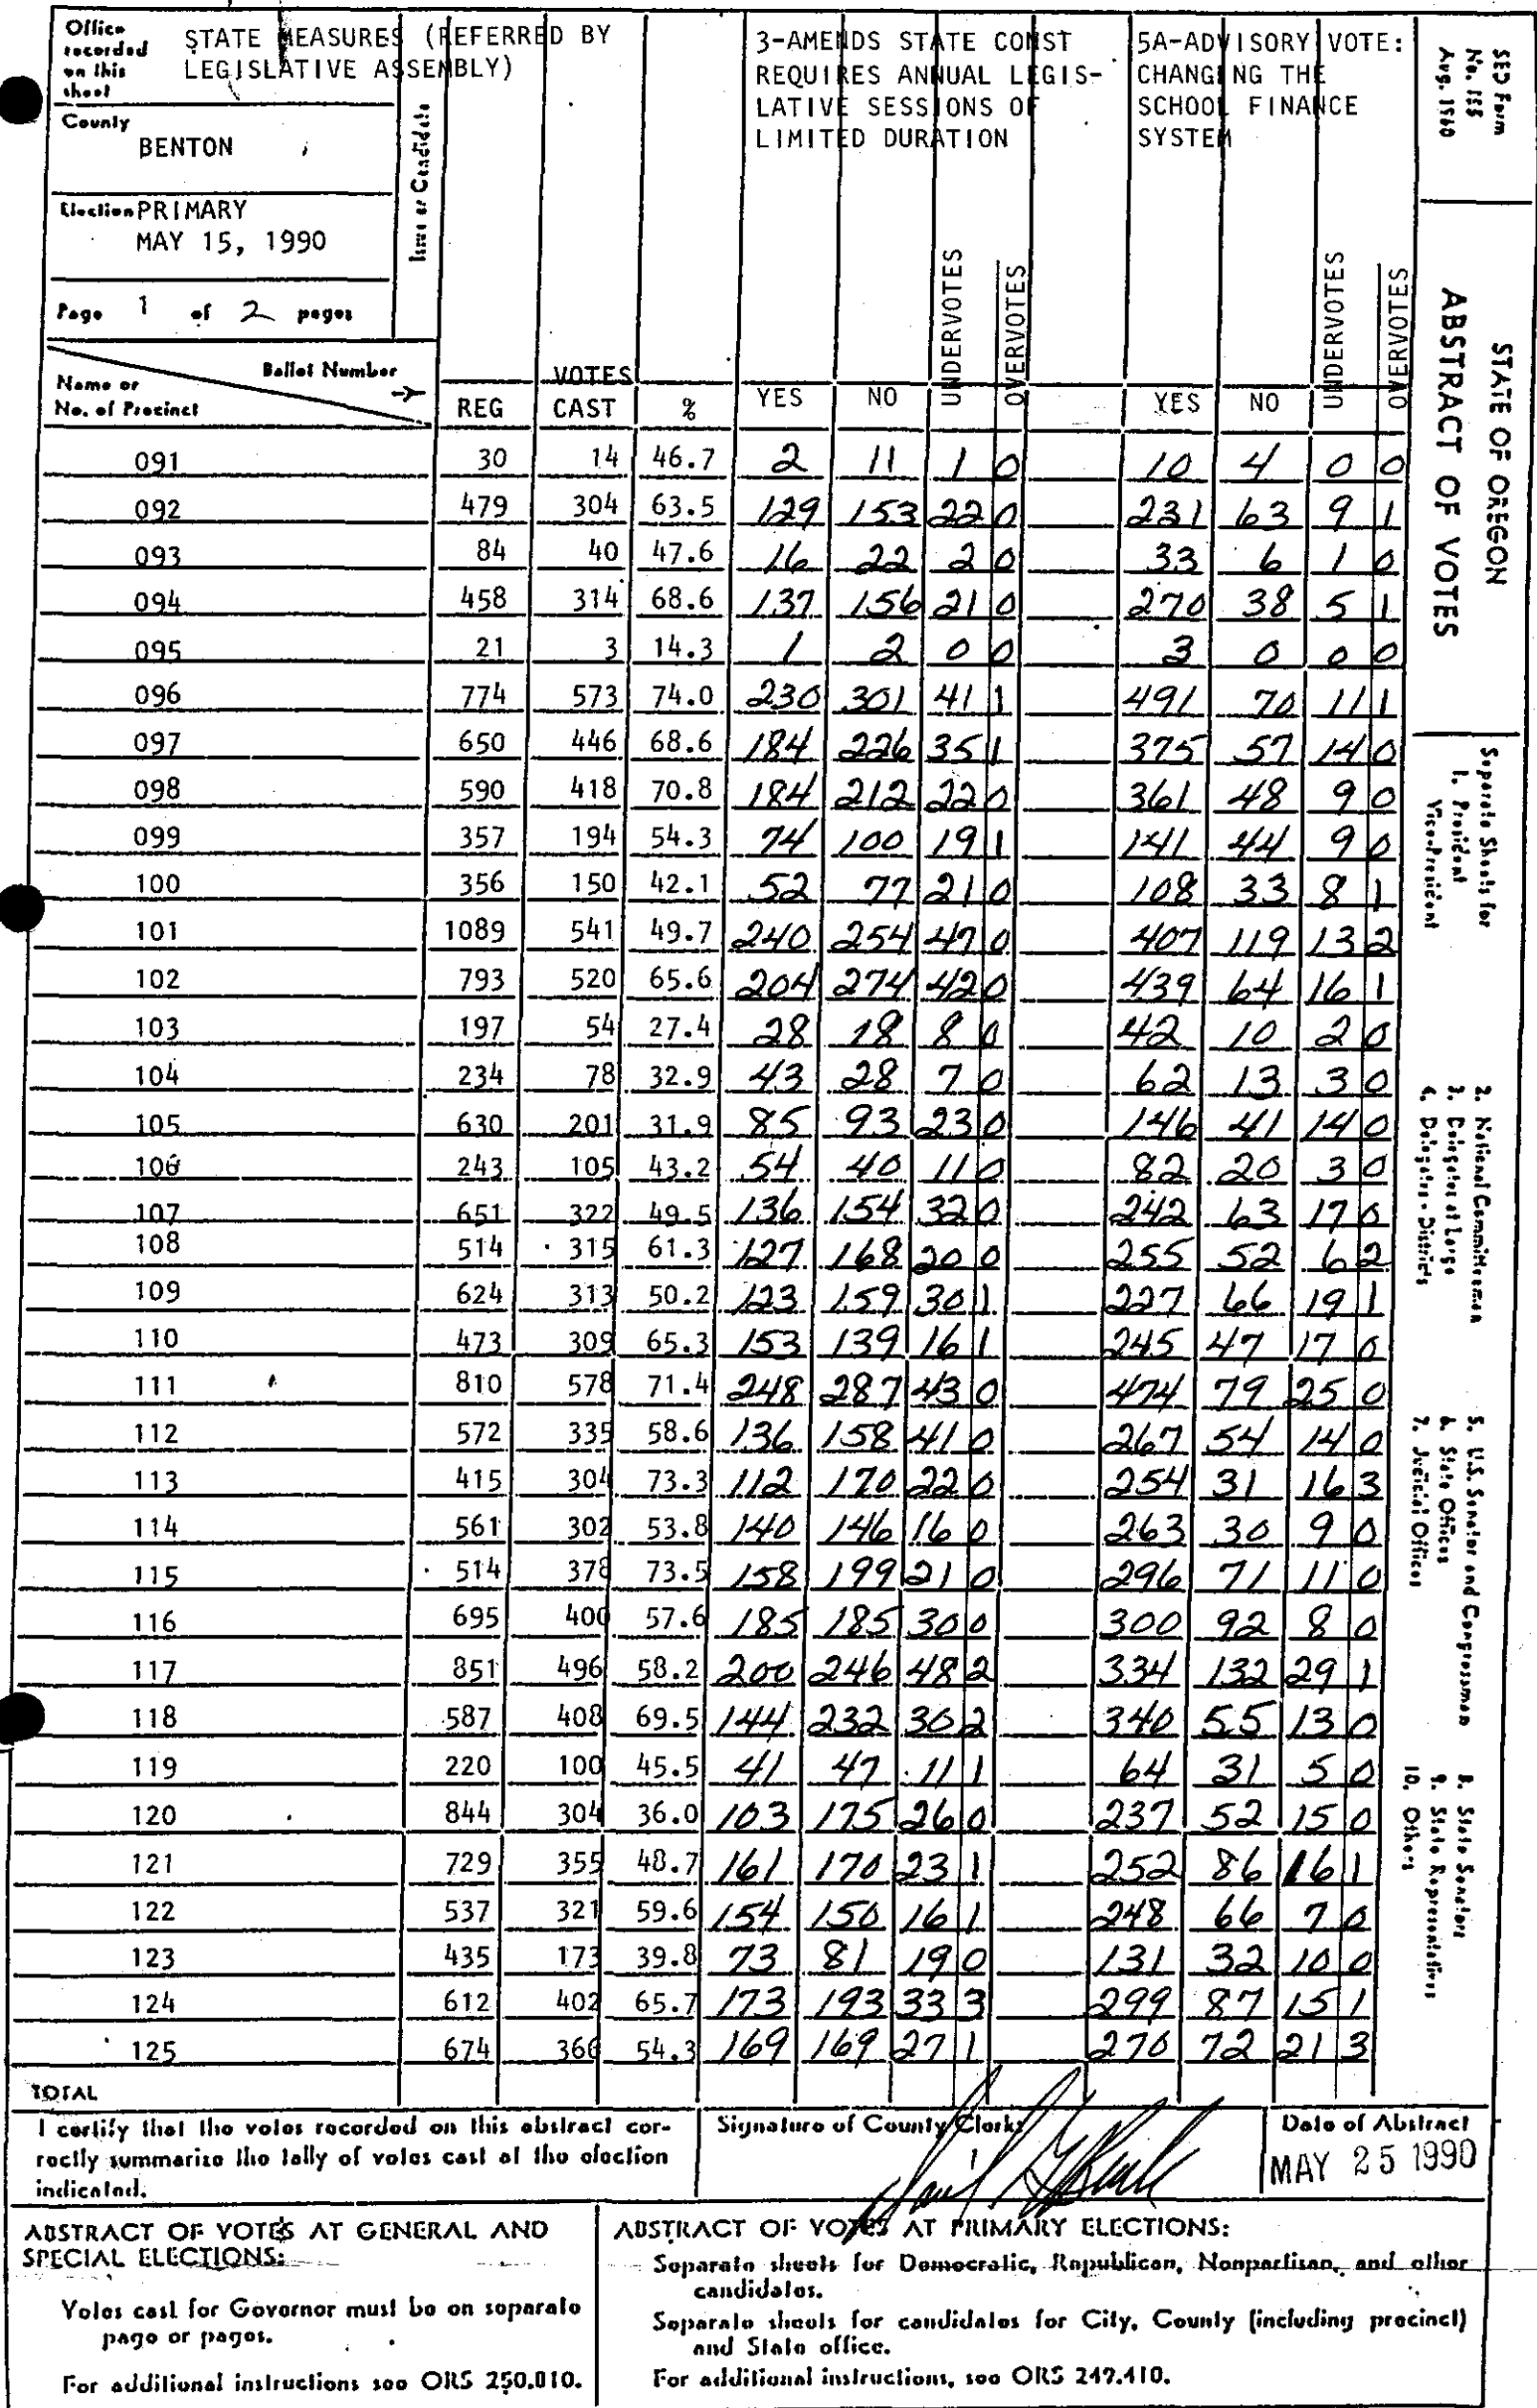 Office recorded on this sheet STATE MEASURES (REFERRED BY LEGISLATIVE ASSEMBLY)
County
BENTON
Election PRIMARY
MAY 15, 1990
Page 1 of 2 pages
Issue or Candidate
3-AMENDS STATE CONST
REQUIRES ANNUAL LEGIS-
LATIVE SESSIONS OF
LIMITED DURATION
5A-ADVISORY VOTE:
CHANGING THE
SCHOOL FINANCE
SYSTEM
Ballot Number
Name or
No. of Precinct
REG VOTES CAST % YES NO UNDERVOTES OVERVOTES YES NO UNDERVOTES OVERVOTES
091 30 14 46.7 2 11 1 0 10 4 0 0
092 479 304 63.5 129 153 22 0 231 63 9 1
093 84 40 47.6 16 22 2 0 33 6 1 0
094 458 314 68.6 137 156 21 0 270 38 5 1
095 21 3 14.3 1 2 0 0 3 0 0 0
096 774 573 74.0 230 301 41 1 491 70 11 1
097 650 446 68.6 184 226 35 1 375 57 14 0
098 590 418 70.8 184 212 22 0 361 48 9 0
099 357 194 54.3 74 100 19 1 141 44 9 0
100 356 150 42.1 52 77 21 0 108 33 8 1
101 1089 541 49.7 240 254 47 0 407 119 13 2
102 793 520 65.6 204 274 42 0 439 64 16 1
103 197 54 27.4 28 18 8 0 42 10 2 0
104 234 78 32.9 43 28 7 0 62 13 3 0
105 630 201 31.9 85 93 23 0 146 41 14 0
106 243 105 43.2 54 40 11 0 82 20 3 0
107 651 322 49.5 136 154 32 0 242 63 17 0
108 514 315 61.3 127 168 20 0 255 52 6 2
109 624 313 50.2 123 159 30 1 227 66 19 1
110 473 309 65.3 153 139 16 1 245 47 17 0
111 810 578 71.4 248 287 43 0 474 79 25 0
112 572 335 58.6 136 158 41 0 267 54 14 0
113 415 304 73.3 112 170 22 0 254 31 16 3
114 561 302 53.8 140 146 16 0 263 30 9 0
115 514 378 73.5 158 199 21 0 296 71 11 0
116 695 400 57.6 185 185 30 0 300 92 8 0
117 851 496 58.2 200 246 48 2 334 132 29 1
118 587 408 69.5 144 232 30 2 340 55 13 0
119 220 100 45.5 41 47 11 1 64 31 5 0
120 844 304 36.0 103 175 26 0 237 52 15 0
121 729 355 48.7 161 170 23 1 252 86 16 1
122 537 321 59.6 154 150 16 1 248 66 7 0
123 435 173 39.8 73 81 19 0 131 32 10 0
124 612 402 65.7 173 193 33 3 299 87 15 1
125 674 366 54.3 169 169 27 1 270 72 21 3
TOTAL
I certify that the votes recorded on this abstract cor-
rectly summarize the tally of votes cast at the election
indicated.
Signature of County Clerk:
Date of Abstract
MAY 25 1990
ABSTRACT OF VOTES AT GENERAL AND
SPECIAL ELECTIONS:
Votes cast for Governor must be on separate
page or pages.
For additional instructions see ORS 250.810.
ABSTRACT OF VOTES AT PRIMARY ELECTIONS:
Separate sheets for Democratic, Republican, Nonpartisan, and other
candidates.
Separate sheets for candidates for City, County (including precinct)
and State office.
For additional instructions, see ORS 249.410.
SED Form
No. 155
Aug. 1980
STATE OF OREGON
ABSTRACT OF VOTES
Separate Sheets for
1. President
Vice-President
2. National Committeeman
3. Delegates at Large
4. Delegates - Districts
5. U.S. Senator and Congressman
6. State Offices
7. Judicial Offices
8. State Senators
9. State Representatives
10. Others